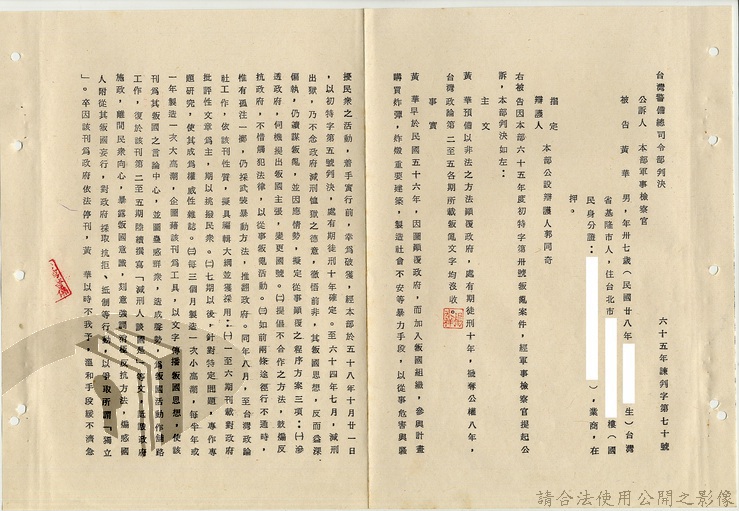 台灣警備總司令部判決
六十五年諫判字第七十號
公訴人 本部軍事檢察官
被告 黃華 男,年卅七歲(民國廿八年 生)台灣
省基隆市人,住台北市 樓(國
民身分證: ),業商,在
押。
指定
辯護人 本部公設辯護人郭同奇
右被告因本部六十五年度初特字第卅號叛亂案件,經軍事檢察官提起公
訴,本部判決如左:
主文
黃華預備以非法之方法顛覆政府,處有期徒刑十年,褫奪公權八年,
台灣政論第二至五各期所載叛亂文字均沒收。
事實
黃華早於民國五十六年,因圖顛覆政府,而加入叛國組織,參與計畫
購買炸彈,炸燬重要建築,製造社會不安等暴力手段,以從事危害與騷
擾民衆之活動,着手實行前,幸爲破獲,經本部於五十八年十月廿一日
,以初特字第五號判決,處有期徒刑十年確定。至六十四年七月,減刑
出獄,乃不念政府減刑恤獄之德意,徹悟前非,其叛國思想,反而益深、
偏執,仍續謀叛亂,並因應情勢,擬定從事顛覆之程序方案三項:㈠滲
透政府,伺機提出叛國主張,變更國號。㈡提倡不合作之方法,鼓煽反
抗政府,不惜觸犯法律,以從事叛亂活動。㈢如前兩條途徑行不通時,
惟有孤注一擲,仍採武裝暴動方法,推翻政府。同年八月,至台灣政論
社工作,依該刊性質,擬具編輯大綱並獲採用:㈠一至六期刊載對政府
批評性文章爲主,期以挑撥民衆。㈡七期以後,針對特定問題,專作專
題研究,使其成爲權威性雜誌。㈢每三個月製造一次小高潮,每半年或
一年製造一次大高潮,企圖藉該刊爲工具,以文字傳播叛國思想,使該
刊爲其叛國之言論中心,並圖蠱惑群衆,造成聲勢,爲叛國活動作舖路
工作,復於該刊第二至五期陸續撰寫「減刑人談國是」等文,詆譭政府
施政,離間民衆向心,暴露叛國意識,刻意強調消極反抗方法,煽惑國
人附從其叛國妄行,對政府採取抗拒、抵制等行動,以爭取所謂「獨立
」。卒因該刊爲政府依法停刊,黃華以時不我予,溫和手段緩不濟急
請合法使用公開之影像